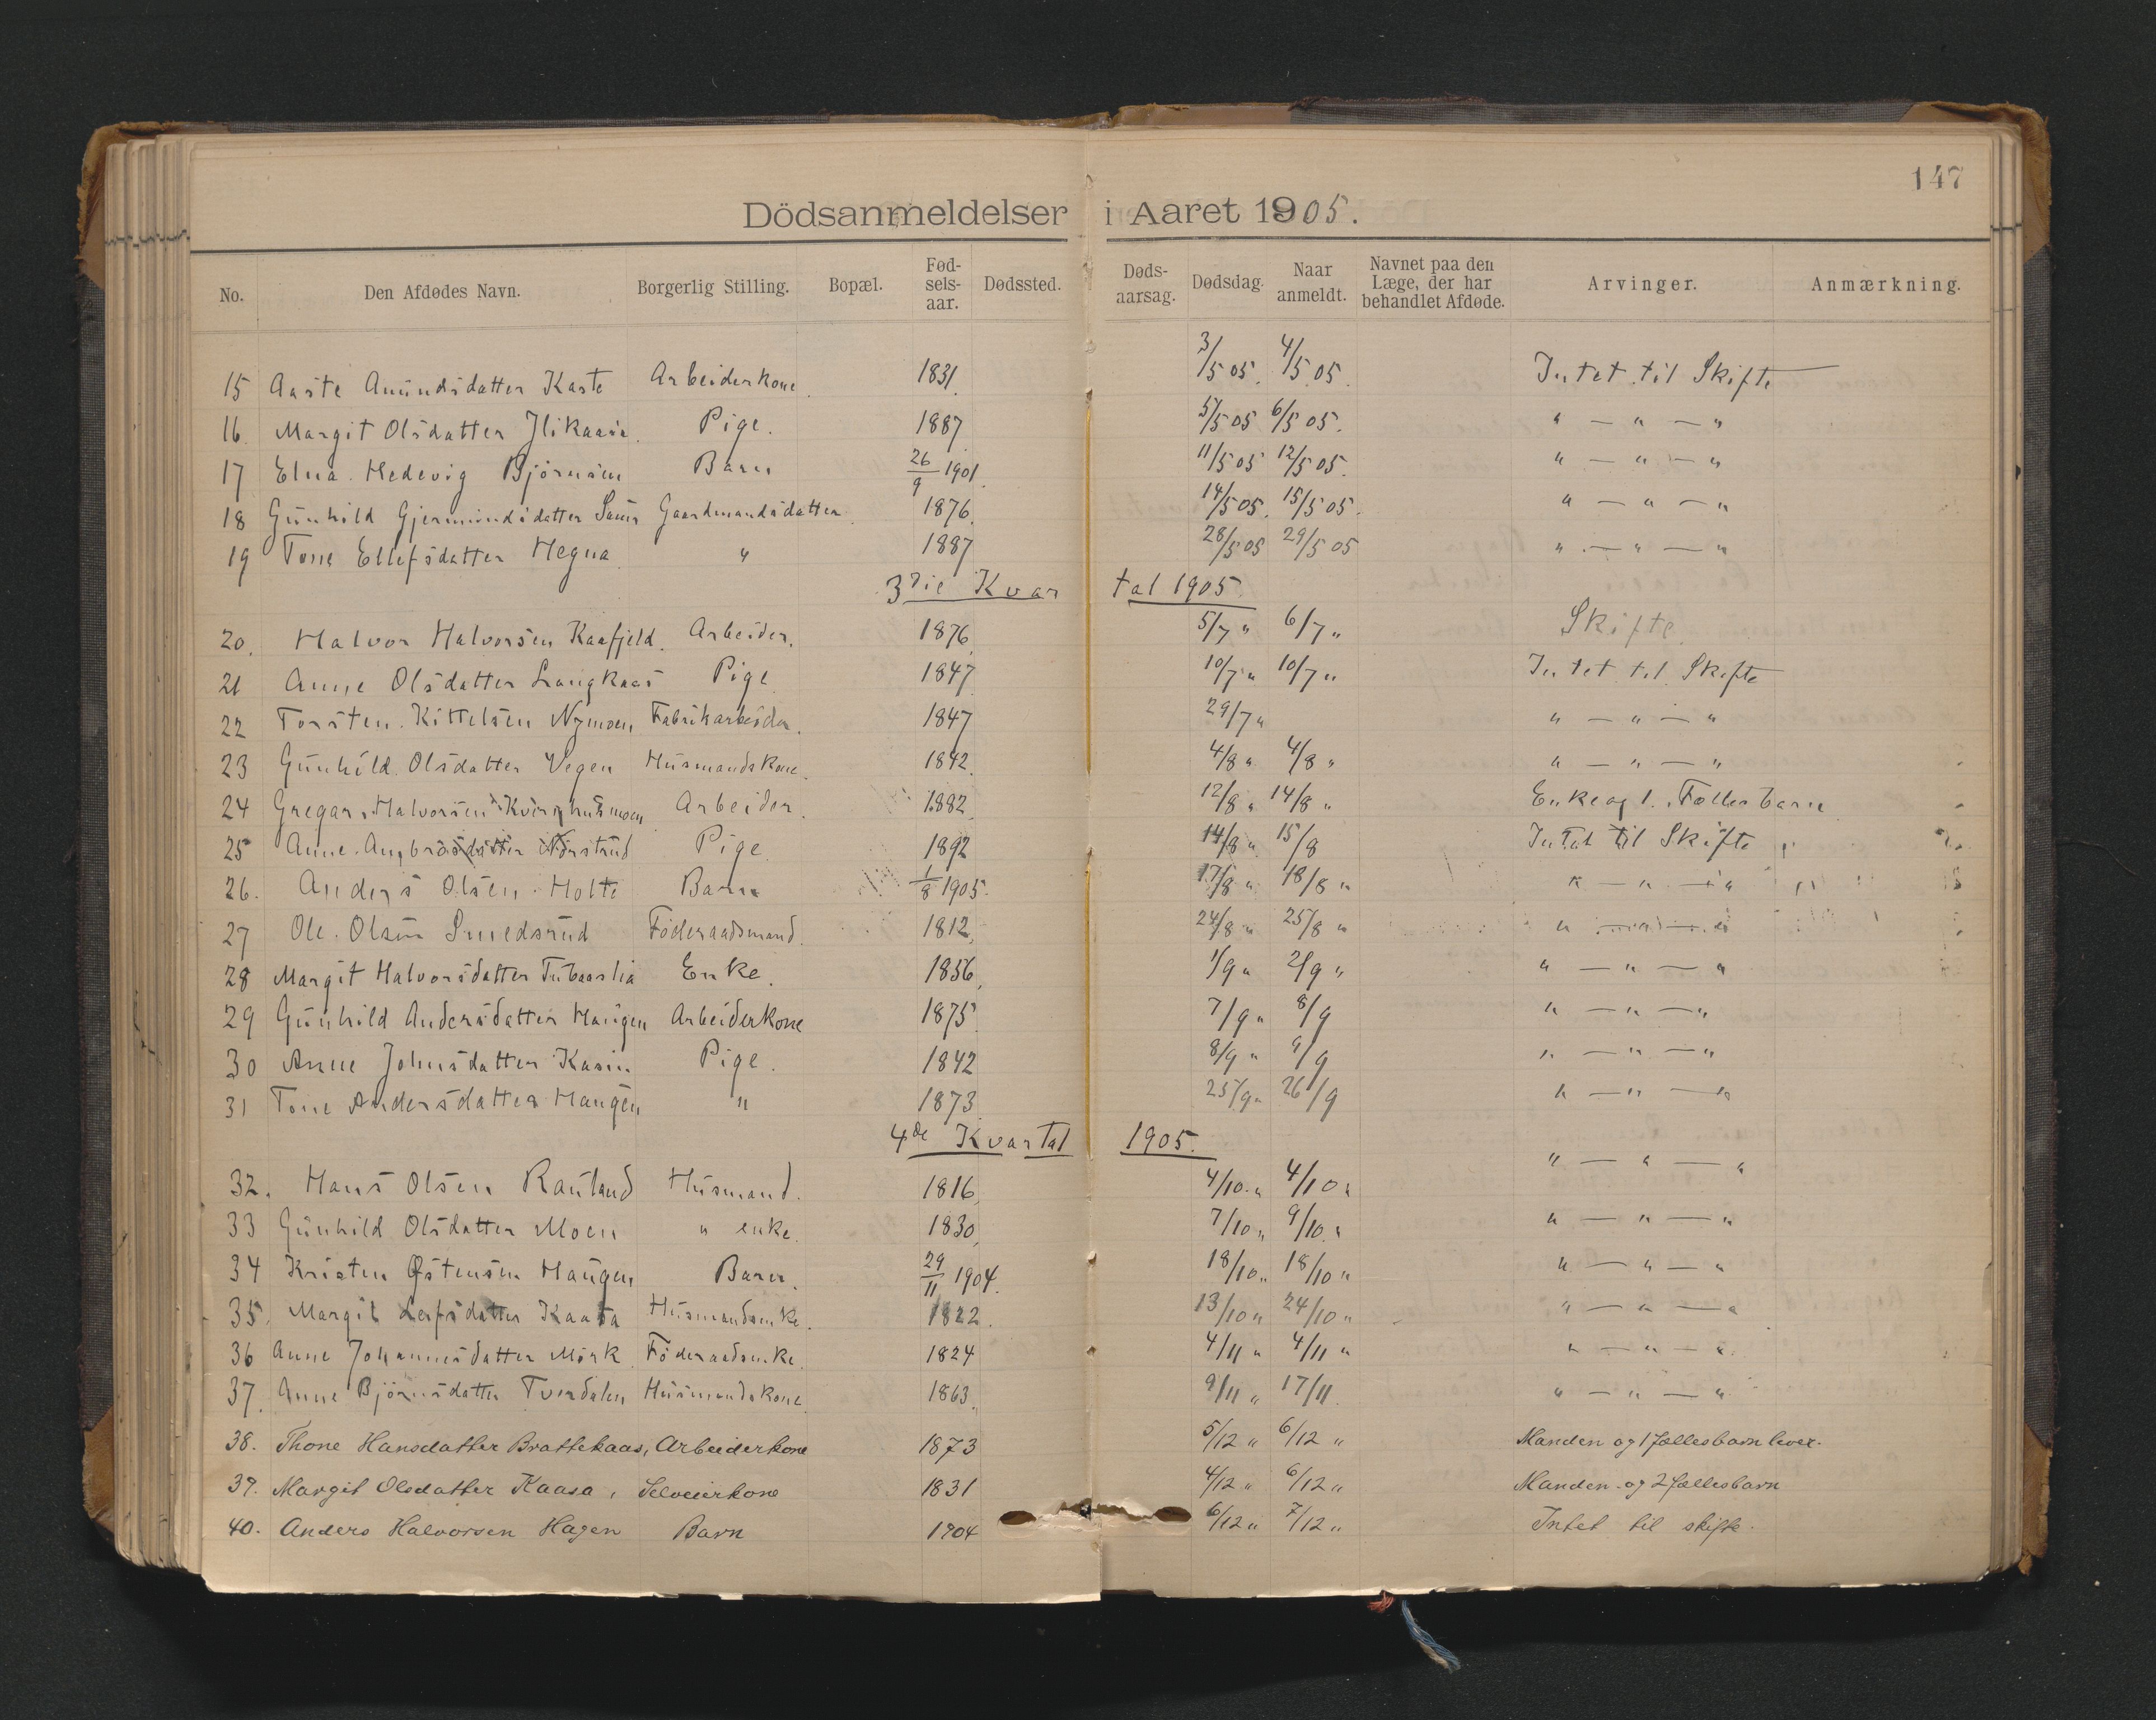 147
Dödsanmeldelser i Aaret 1905.
No. Den Afdødes Navn. Borgerlig Stilling. Bopæl. Fød-sels-aar. Dødssted. Døds-aarsag. Dødsdag. Naar anmeldt. Navnet paa den Læge, der har behandlet Afdøde. Arvinger. Anmærkning.
15 Aaste Amundsdatter Kaste Arbeiderkone 1831. 3/5 05. 4/5 05. Intet til Skifte
16. Margit Olsdatter Pige. 1887 5/5 05 6/5 05. " — " — "
17 Elna Hedevig Björnsen Barn 26/9 1901. 11/5 05 12/5 05. " — " — "
18 Gunhild Gjermundsdatter Gaardmandsdatter. 1876. 14/5 05. 15/5 05. " — " — "
19 Tone Ellefsdatter Hegna " 1887 28/5 05 29/5 05 " — " — "
3die Kvartal 1905.
20. Halvor Halvorsen Kaafjeld. Arbeider. 1876. 5/7 " 6/7 " Skifte.
21 Anne Olsdatter Langkaas Pige 1847 10/7 " 10/7 " Intet til Skifte
22 Torsten Kittelsen Nymoen Fabrikarbeider. 1847 29/7 " " — " — "
23 Gunhild Olsdatter Vegen Husmandskone. 1842. 4/8 " 4/8 " " — " — "
24 Gregar Halvorsen Kvernhusmoen Arbeider. 1882. 12/8 " 14/8 " Enke og 1. Fællesbarn
25 Anne Pige. 1892 14/8 " 15/8 Intet til Skifte "
26. Anders Olsen Holte Barn 1/8 1905. 17/8 " 18/8 " " — " — "
27 Ole Olsen Smedsrud Föderaadsmand. 1812. 24/8 " 25/8 " " — " — "
28 Margit Halvorsdatter Enke. 1856. 1/9 " 2/9 " " — " — "
29 Gunhild Andersdatter Haugen Arbeiderkone 1875. 7/9 " 8/9 " — " — "
30 Anne Johnsdatter Kasin Pige. 1842 8/9 " 9/9 " — " — "
31 Tone Andersdatter Haugen " 1873. 25/9 " 26/9 " — " — "
4de Kvartal 1905.
32. Hans Olsen Rauland Husmand. 1816. 4/10 " 4/10 " " — " — "
33 Gunhild Olsdatter Moen " enke. 1830. 7/10 " 9/10 " " — " — "
34 Kristen Østensen Haugen Barn. 29/11 1904. 18/10 " 18/10 " " — " — "
35. Margit Leifsdatter Kaasa Husmandsenke. 1822. 13/10 " 24/10 " " — " — "
36 Anne Johannesdatter Mörk Föderaadsenke. 1824 4/11 " 4/11 " " — " — "
37. Anne Björnsdatter Tverdalen Husmandskone. 1863. 9/11 " 17/11. " — " — "
38. Thone Hansdatter Brattekaas, Arbeiderkone 1873 5/12 " 6/12 " Manden og 1 fællesbarn lever.
39. Margit Olsdatter Kaasa, Selveierkone 1831 4/12 " 6/12 " Manden og 2 fællesbarn
40. Anders Halvorsen Hagen Barn 1904 6/12 " 7/12 " Intet til skifte.